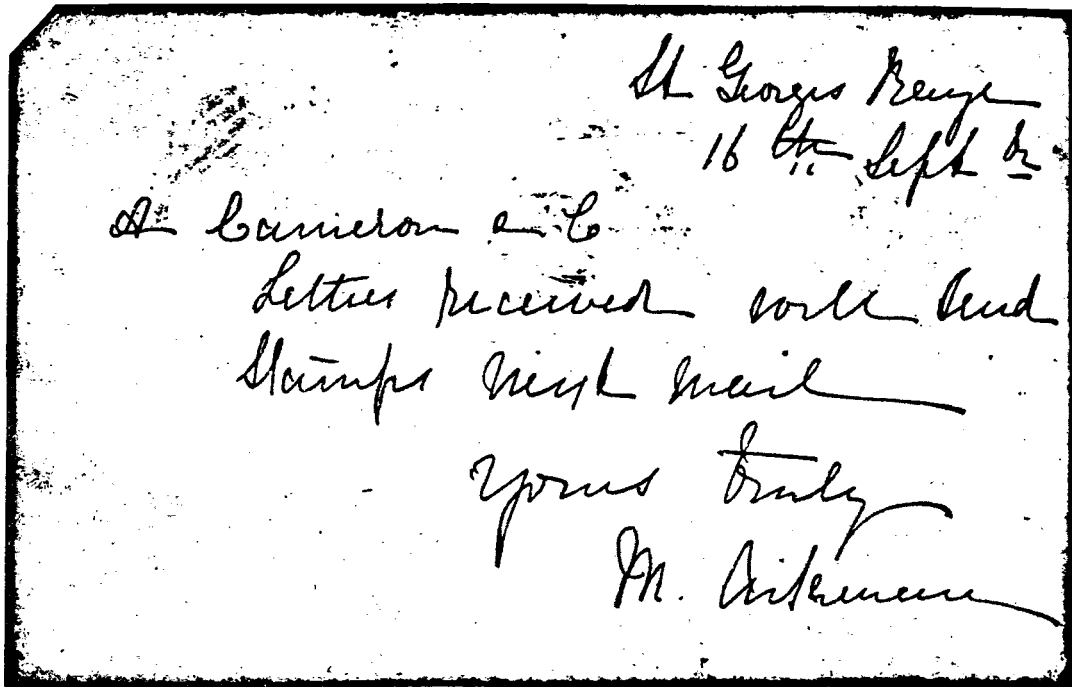 St Georges Range
16th Sept
A Cameron & Co
Letter received will send
Stamps next mail
Yours truly
M.